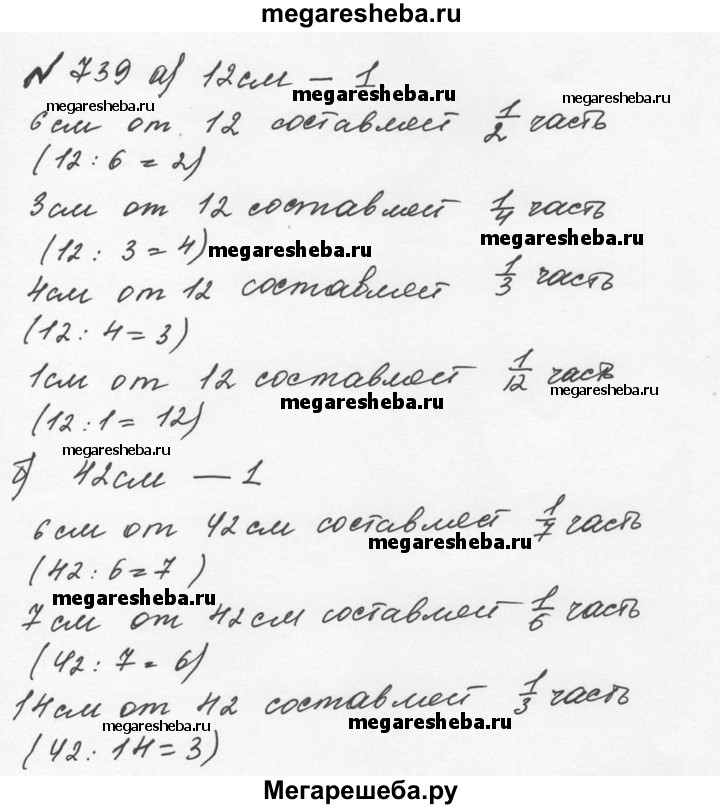 megaresheba.ru
№ 739 а) 12см – 1
megaresheba.ru megaresheba.ru megaresheba.ru
6 см от 12 составляет 1/2 часть
(12 : 6 = 2)
3см от 12 составляет 1/4 часть
megaresheba.ru
(12 : 3 = 4) megaresheba.ru
4см от 12 составляет 1/3 часть
(12 : 4 = 3)
1см от 12 составляет 1/12 часть
megaresheba.ru
(12 : 1 = 12)
megaresheba.ru
б) 42см – 1
6см от 42см составляет 1/7 часть
megaresheba.ru
(42 : 6 = 7)
megaresheba.ru
7см от 42см составляет 1/6 часть
(42 : 7 = 6)
14см от 42 составляет 1/3 часть
megaresheba.ru megaresheba.ru
(42 : 14 = 3)
Мегарешеба.ру